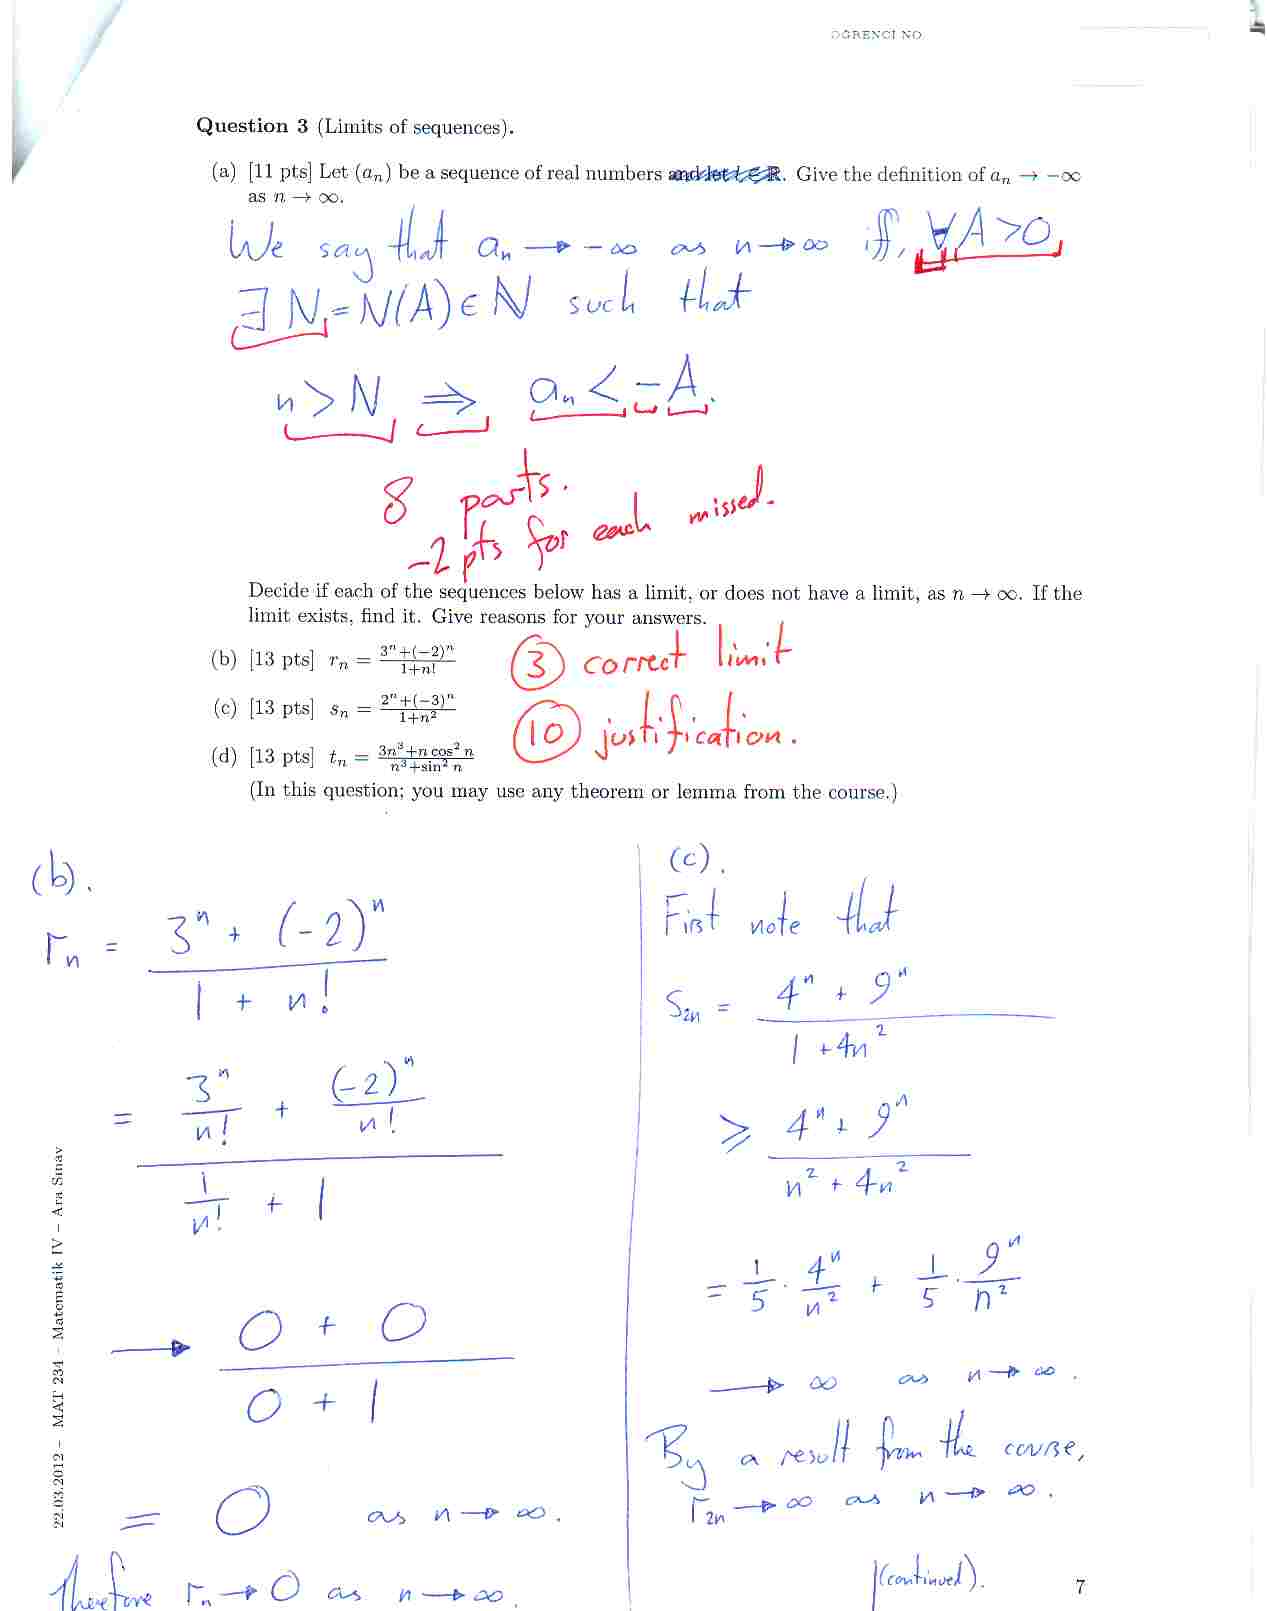 ÖĞRENCİ NO
Question 3 (Limits of sequences).
(a) [11 pts] Let (aₙ) be a sequence of real numbers and let ℓ ∈ ℝ. Give the definition of aₙ → −∞
as n → ∞.
We say that aₙ → −∞ as n → ∞ iff, ∀A>0,
∃ N = N(A) ∈ ℕ such that
n > N ⇒ aₙ < −A.
8 parts.
−2 pts for each missed.
Decide if each of the sequences below has a limit, or does not have a limit, as n → ∞. If the
limit exists, find it. Give reasons for your answers.
(b) [13 pts] rₙ = (3ⁿ+(−2)ⁿ)/(1+n!)
(c) [13 pts] sₙ = (2ⁿ+(−3)ⁿ)/(1+n²)
(d) [13 pts] tₙ = (3n³+n cos² n)/(n³+sin² n)
(In this question; you may use any theorem or lemma from the course.)
3 correct limit
10 justification.
(b).
rₙ = (3ⁿ + (−2)ⁿ)/(1 + n!)
= (3ⁿ/n! + (−2)ⁿ/n!)/(1/n! + 1)
→ (0 + 0)/(0 + 1)
= 0 as n → ∞.
Therefore rₙ → 0 as n → ∞.
(c).
First note that
S₂ₙ = (4ⁿ + 9ⁿ)/(1 + 4n²)
⩾ (4ⁿ + 9ⁿ)/(n² + 4n²)
= 1/5 · 4ⁿ/n² + 1/5 · 9ⁿ/n²
→ ∞ as n → ∞.
By a result from the course,
r₂ₙ → ∞ as n → ∞.
(continued).
7
22.03.2012 – MAT 234 – Matematik IV – Ara Sınav